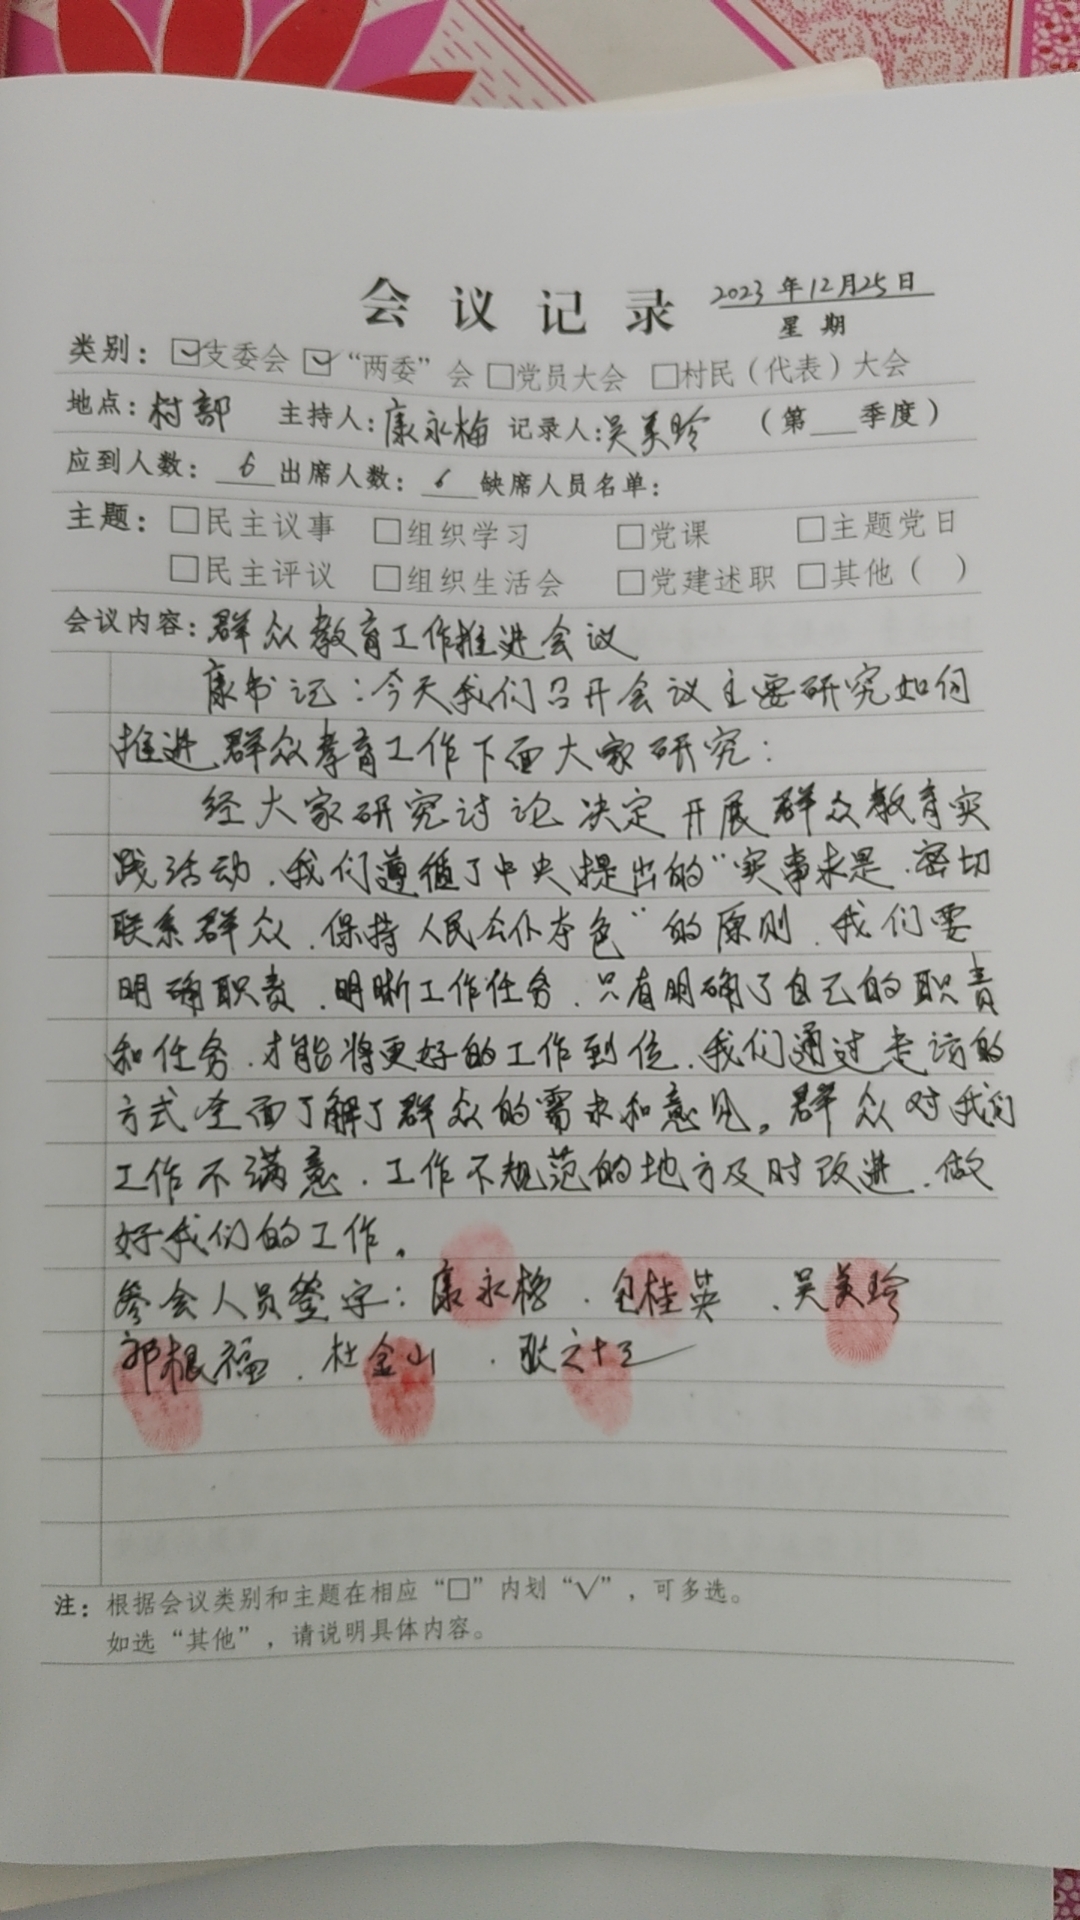 会议记录 2023年12月25日
星期
类别：☑支委会 ☑“两委”会 □党员大会 □村民（代表）大会
地点：村部 主持人：康永梅 记录人：吴美玲 （第___季度）
应到人数：6 出席人数：6 缺席人员名单：
主题：□民主议事 □组织学习 □党课 □主题党日
□民主评议 □组织生活会 □党建述职 □其他（ ）
会议内容：群众教育工作推进会议
康书记：今天我们召开会议主要研究如何
推进群众教育工作下面大家研究：
经大家研究讨论决定开展群众教育实
践活动、我们遵循了中央提出的“实事求是、密切
联系群众、保持人民公仆本色”的原则、我们要
明确职责、明晰工作任务、只有明确了自己的职责
和任务、才能将更好的工作到位、我们通过走访的
方式全面了解了群众的需求和意见。群众对我们
工作不满意、工作不规范的地方及时改进、做
好我们的工作。
参会人员签字：康永梅、包桂英、吴美玲
郭根福、杜金山、
注：根据会议类别和主题在相应“□”内划“√”，可多选。
如选“其他”，请说明具体内容。